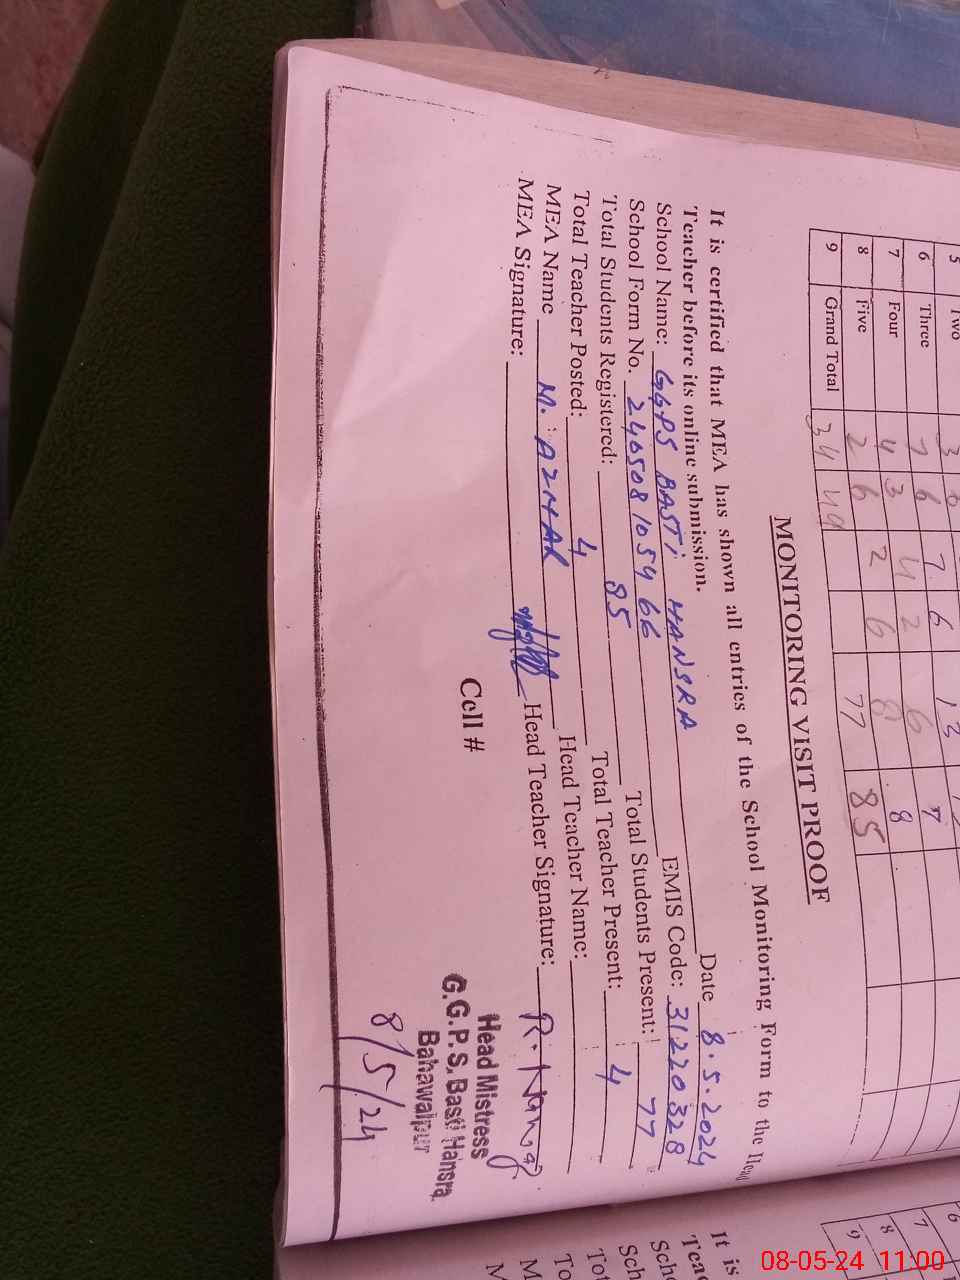 5 Two 3
6 Three 7 6 7 6 13 7
7 Four 4 3 4 2 6 8
8 Five 2 6 2 6 8 85
9 Grand Total 34 49 77
MONITORING VISIT PROOF
It is certified that MEA has shown all entries of the School Monitoring Form to the Head
Teacher before its online submission. Date 8.5.2024
School Name: GGPS BASTI HANSRA EMIS Code: 31220328
School Form No. 240508105466 Total Students Present: 77
Total Students Registered: 85 Total Teacher Present: 4
Total Teacher Posted: 4 Head Teacher Name:
MEA Name M. AZHAR Head Teacher Signature:
MEA Signature:
Cell #
Head Mistress
G.G.P.S. Basti Hansra
Bahawalpur
8/5/24
6
7
8
9
It is
Teac
Scho
Sch
Tot
To
M
M
08-05-24 11:00